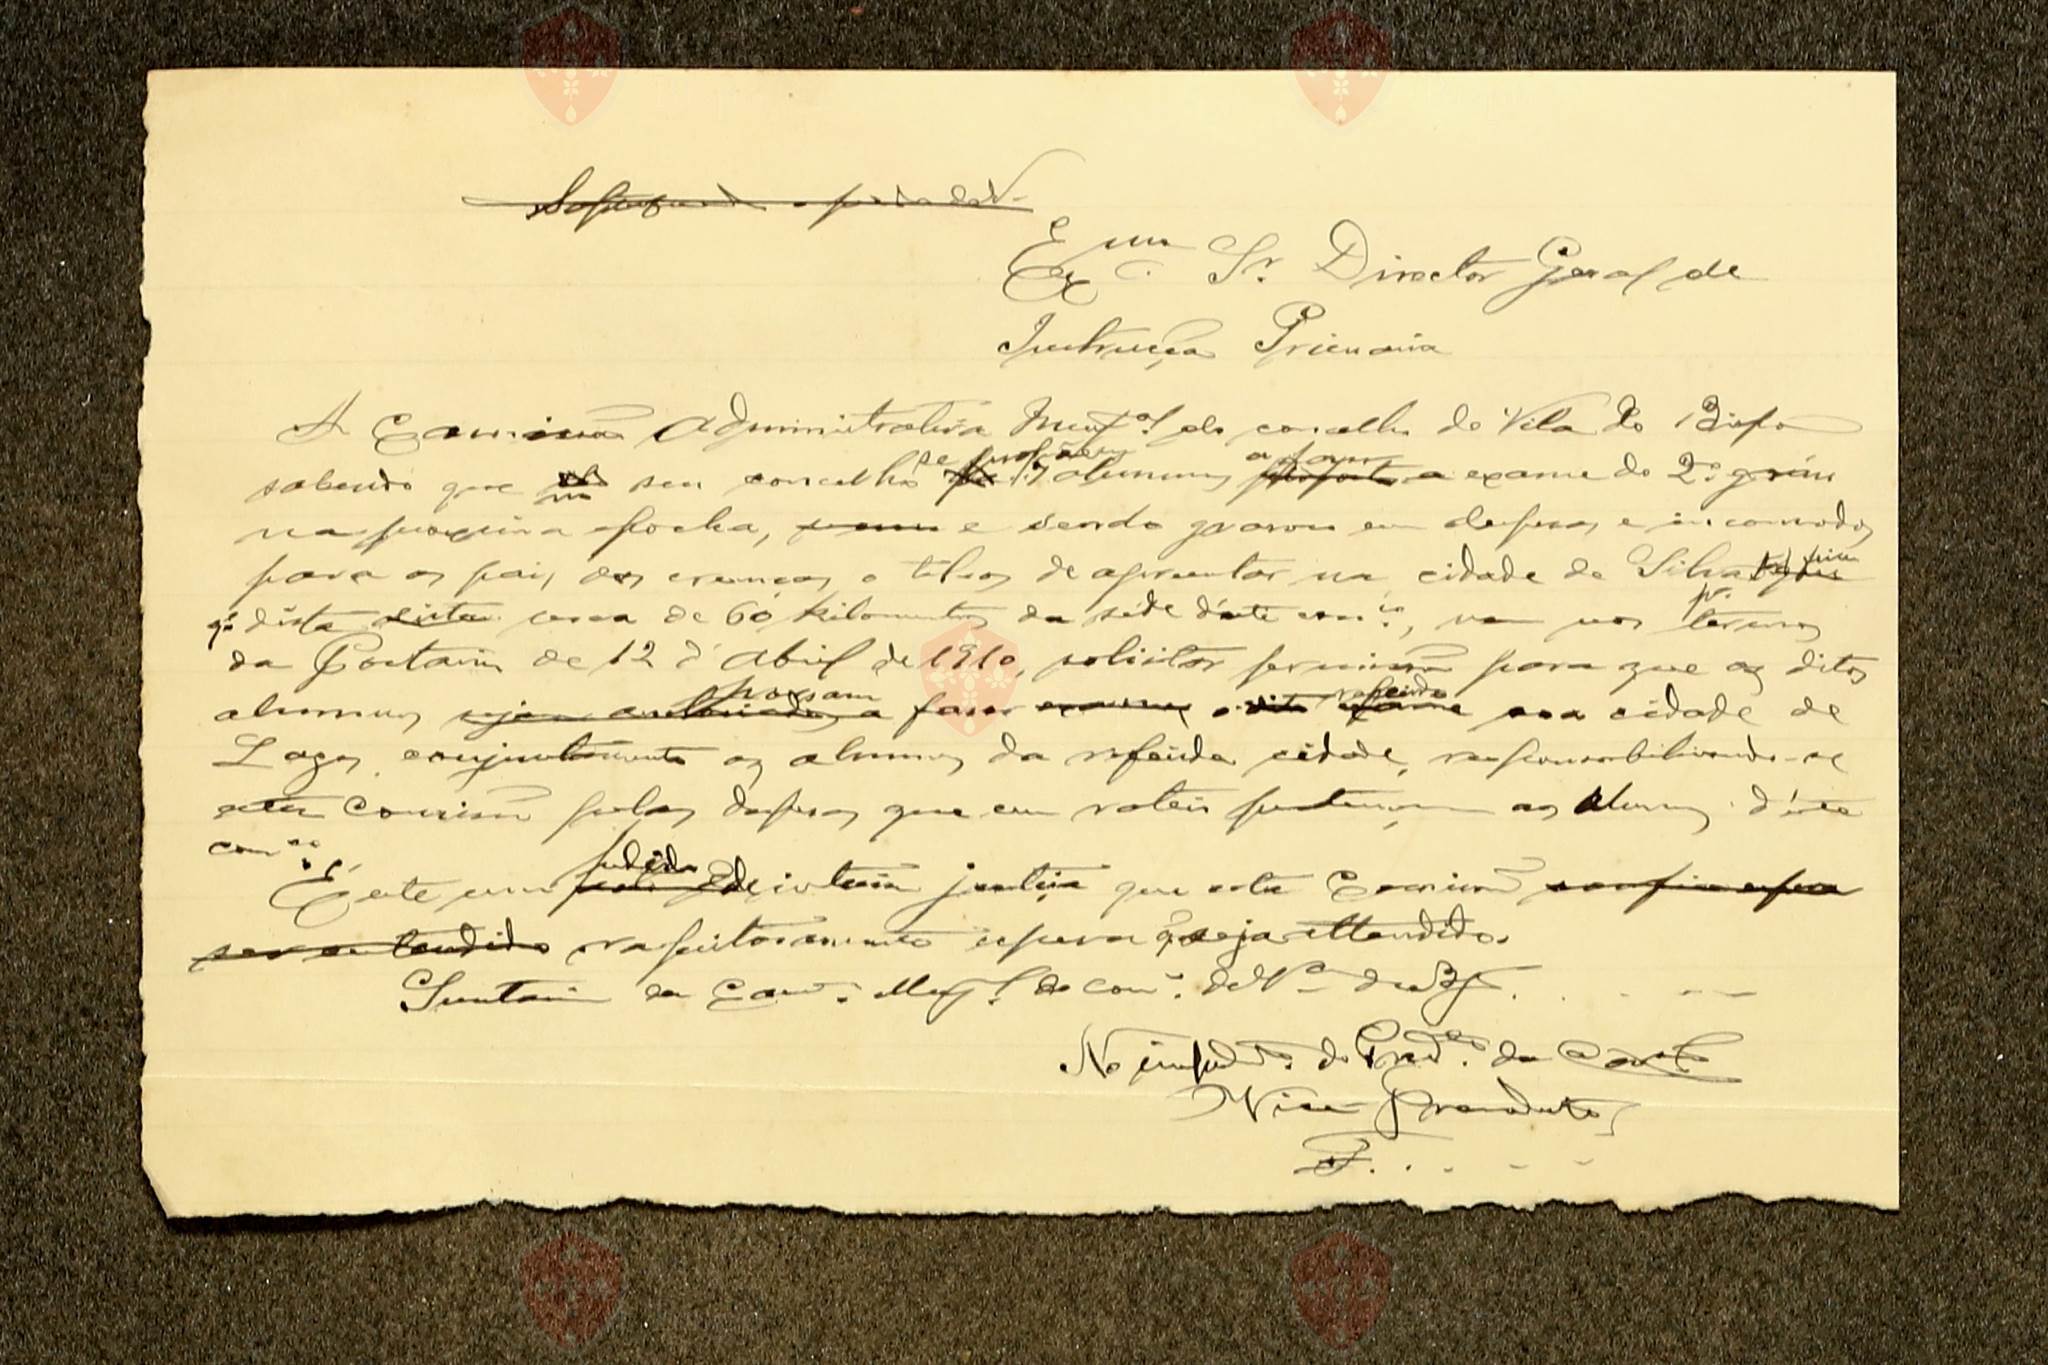 Exmo. Sr. Director Geral de
Instrucção Primaria
A Commissão Administrativa Munpal do concelho de Vila do Bispo
sabendo que no seu concelho se propõem alumnos a fazer exame do 2.º gráu
na proxima epocha, e sendo gravoso em despesas e incomodos
para os pais das creanças o têl-os de apresentar na cidade de Silves
que dista cerca de 60 kilometros da séde d'este conco., vem nos termos
da Portaria de 12 d'Abril de 1910, solicitar permissão para que os ditos
alumnos possam fazer o referido exame na cidade de
Lagos, conjuntamente os alumnos da referida cidade, responsabilisando-se
esta Commissão pelas despesas que em rateio pertençam aos alumnos d'este
conco.
É este um pedido de inteira justiça que esta Commissão
respeitosamente espera que seja attendido.
Secretaria da Cama. Mupal. do conco. de Va. do Bpo.
No impedto. do Predte. da Camara
O Vice Presidente,
F. . . - -